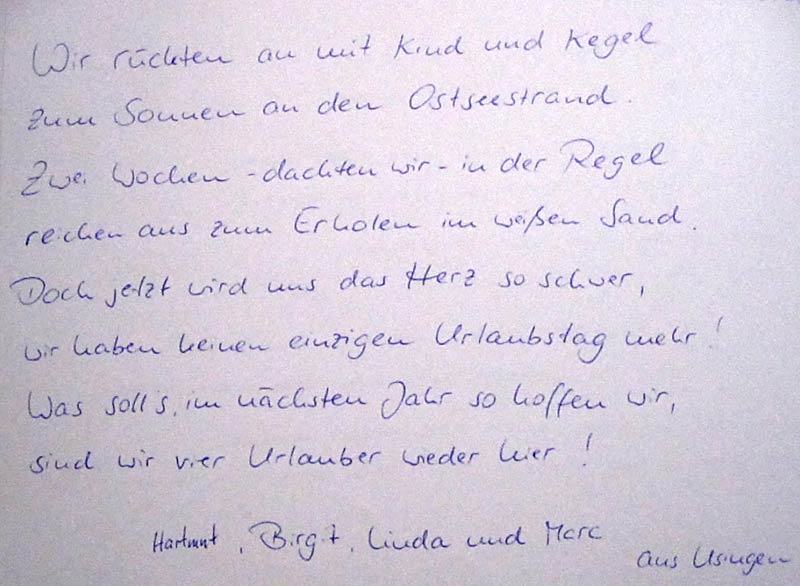 Wir rückten an mit Kind und Kegel
zum Sonnen an den Ostseestrand.
Zwei Wochen - dachten wir - in der Regel
reichen aus zum Erholen im weißen Sand.
Doch jetzt wird uns das Herz so schwer,
wir haben keinen einzigen Urlaubstag mehr!
Was soll's, im nächsten Jahr so hoffen wir,
sind wir vier Urlauber wieder hier!
Hartmut, Birgit, Linda und Marc
aus Usingen